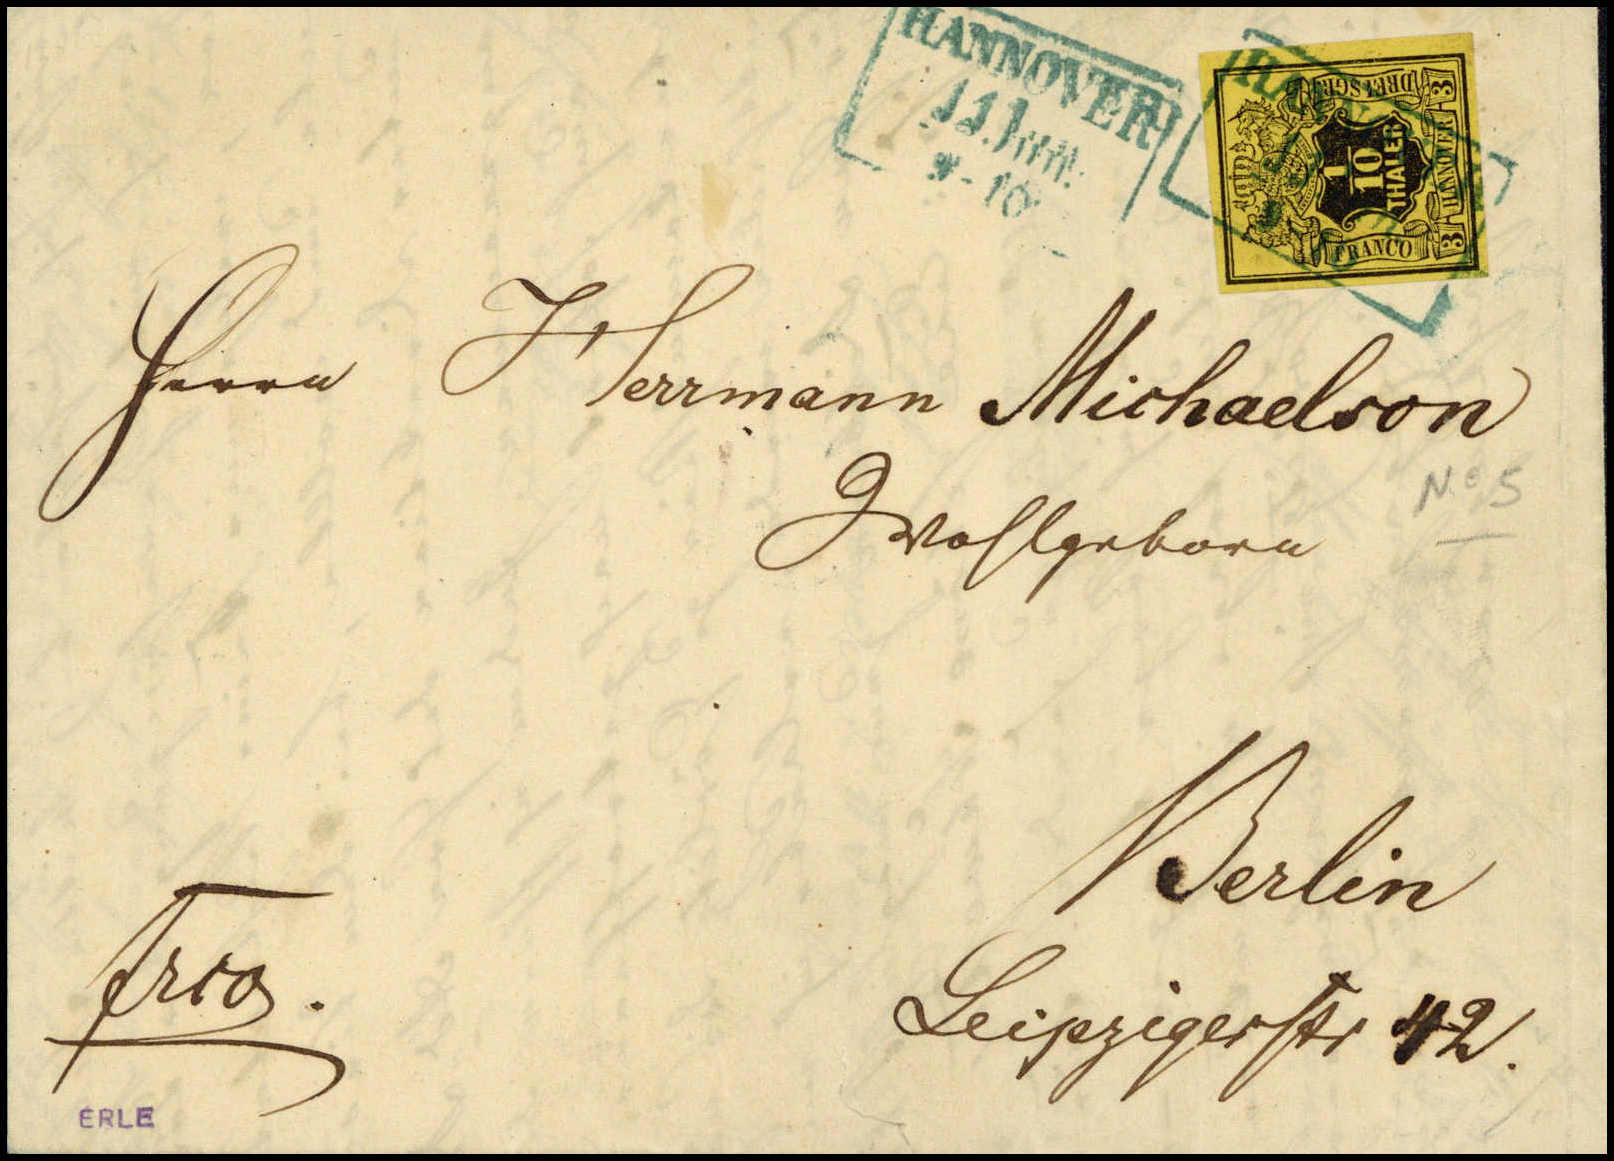 HANNOVER
11 Juni
9-10
DREI SGR.
1/10
THALER
FRANCO
3 HANNOVER 3
Herrn Herrmann Michaelson
Wohlgeborn
No 5
Berlin
Leipzigerstr 42.
frco.
ERLE